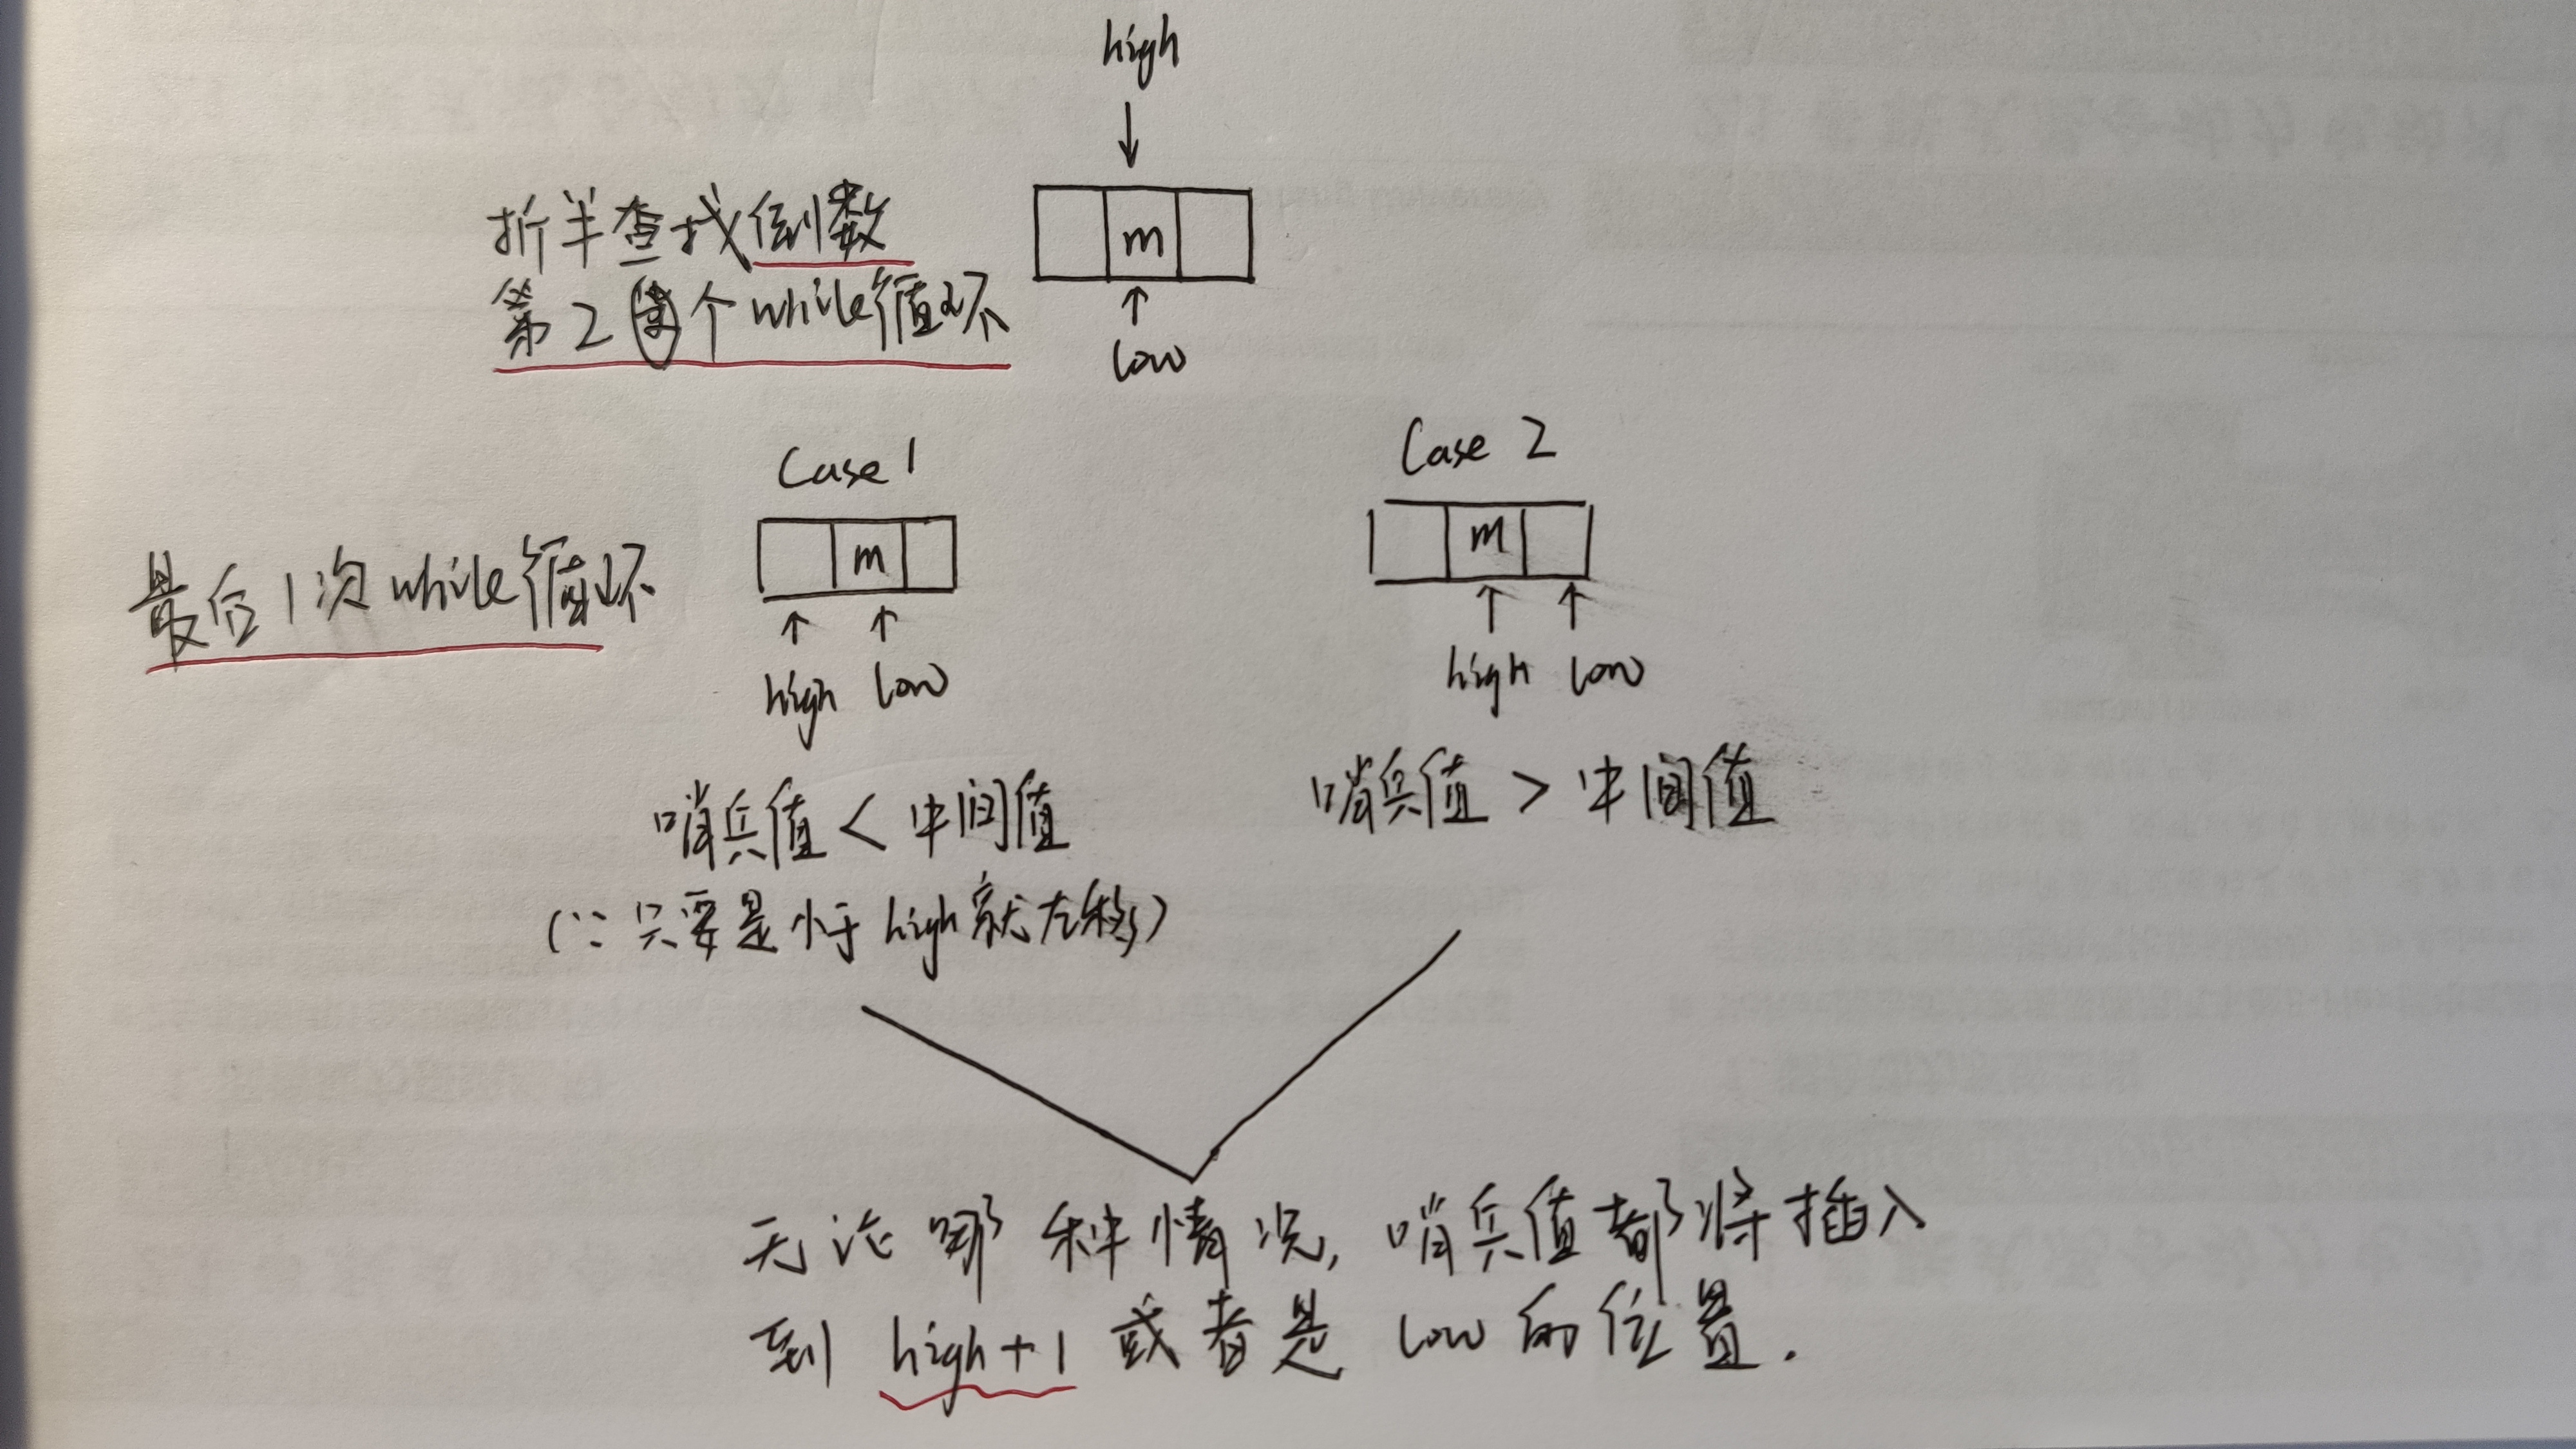 high
折半查找倒数
第2个while循环
m
low
Case 1
Case 2
m
m
最后1次while循环
high low
high low
哨兵值<中间值
哨兵值>中间值
(∵只要是小于high就左移)
无论哪种情况,哨兵值都将插入
到high+1或者是low的位置.